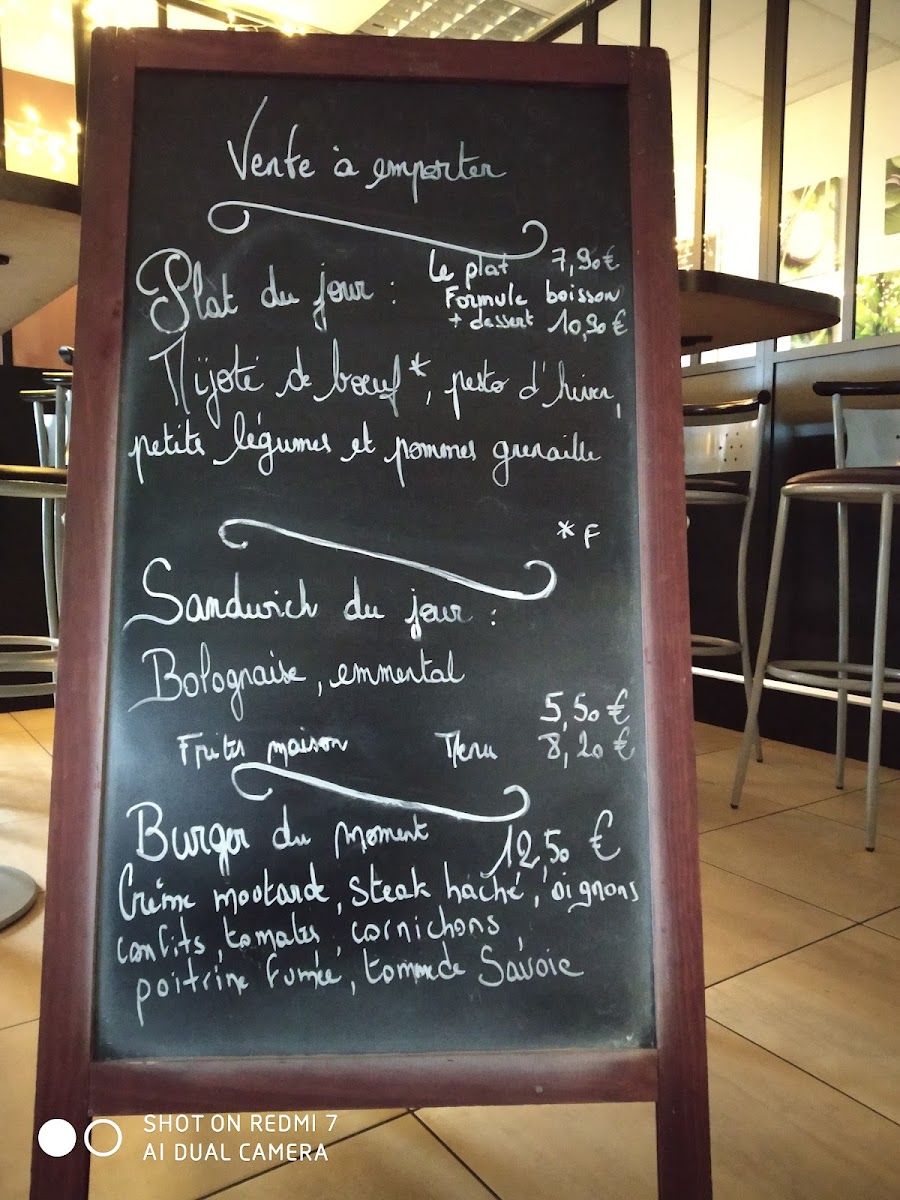 Vente à emporter
Plat du jour :
Le plat 7,90€
Formule boisson
+ dessert 10,90€
Mijoté de bœuf*, pesto d'hiver,
petits légumes et pommes grenaille
*F
Sandwich du jour :
Bolognaise, emmental
5,50 €
Frites maison Menu 8,20 €
Burger du moment 12,50 €
Crème moutarde, steak haché, oignons
confits, tomates, cornichons,
poitrine fumée, tomme de Savoie
SHOT ON REDMI 7
AI DUAL CAMERA